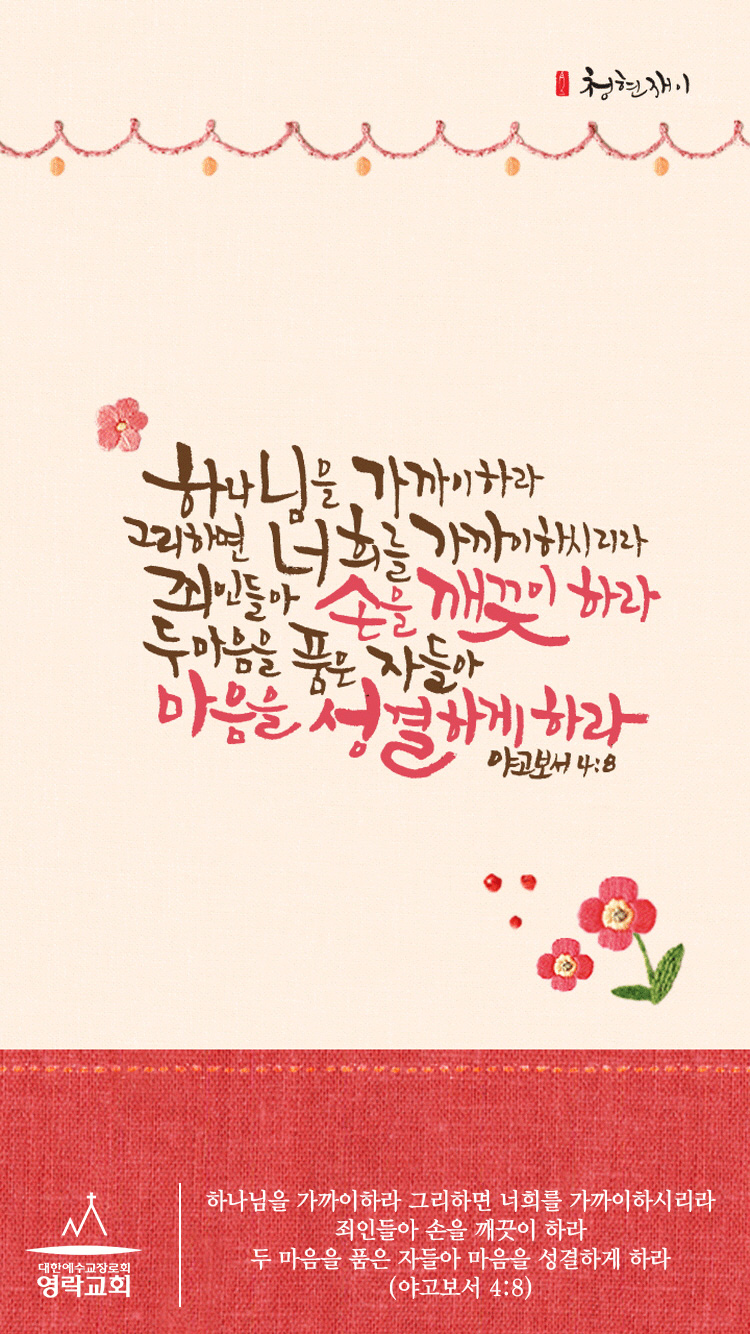 청현재이
하나님을 가까이하라
그리하면 너희를 가까이하시리라
죄인들아 손을 깨끗이 하라
두 마음을 품은 자들아
마음을 성결하게 하라
야고보서 4:8
대한예수교장로회
영락교회
하나님을 가까이하라 그리하면 너희를 가까이하시리라
죄인들아 손을 깨끗이 하라
두 마음을 품은 자들아 마음을 성결하게 하라
(야고보서 4:8)